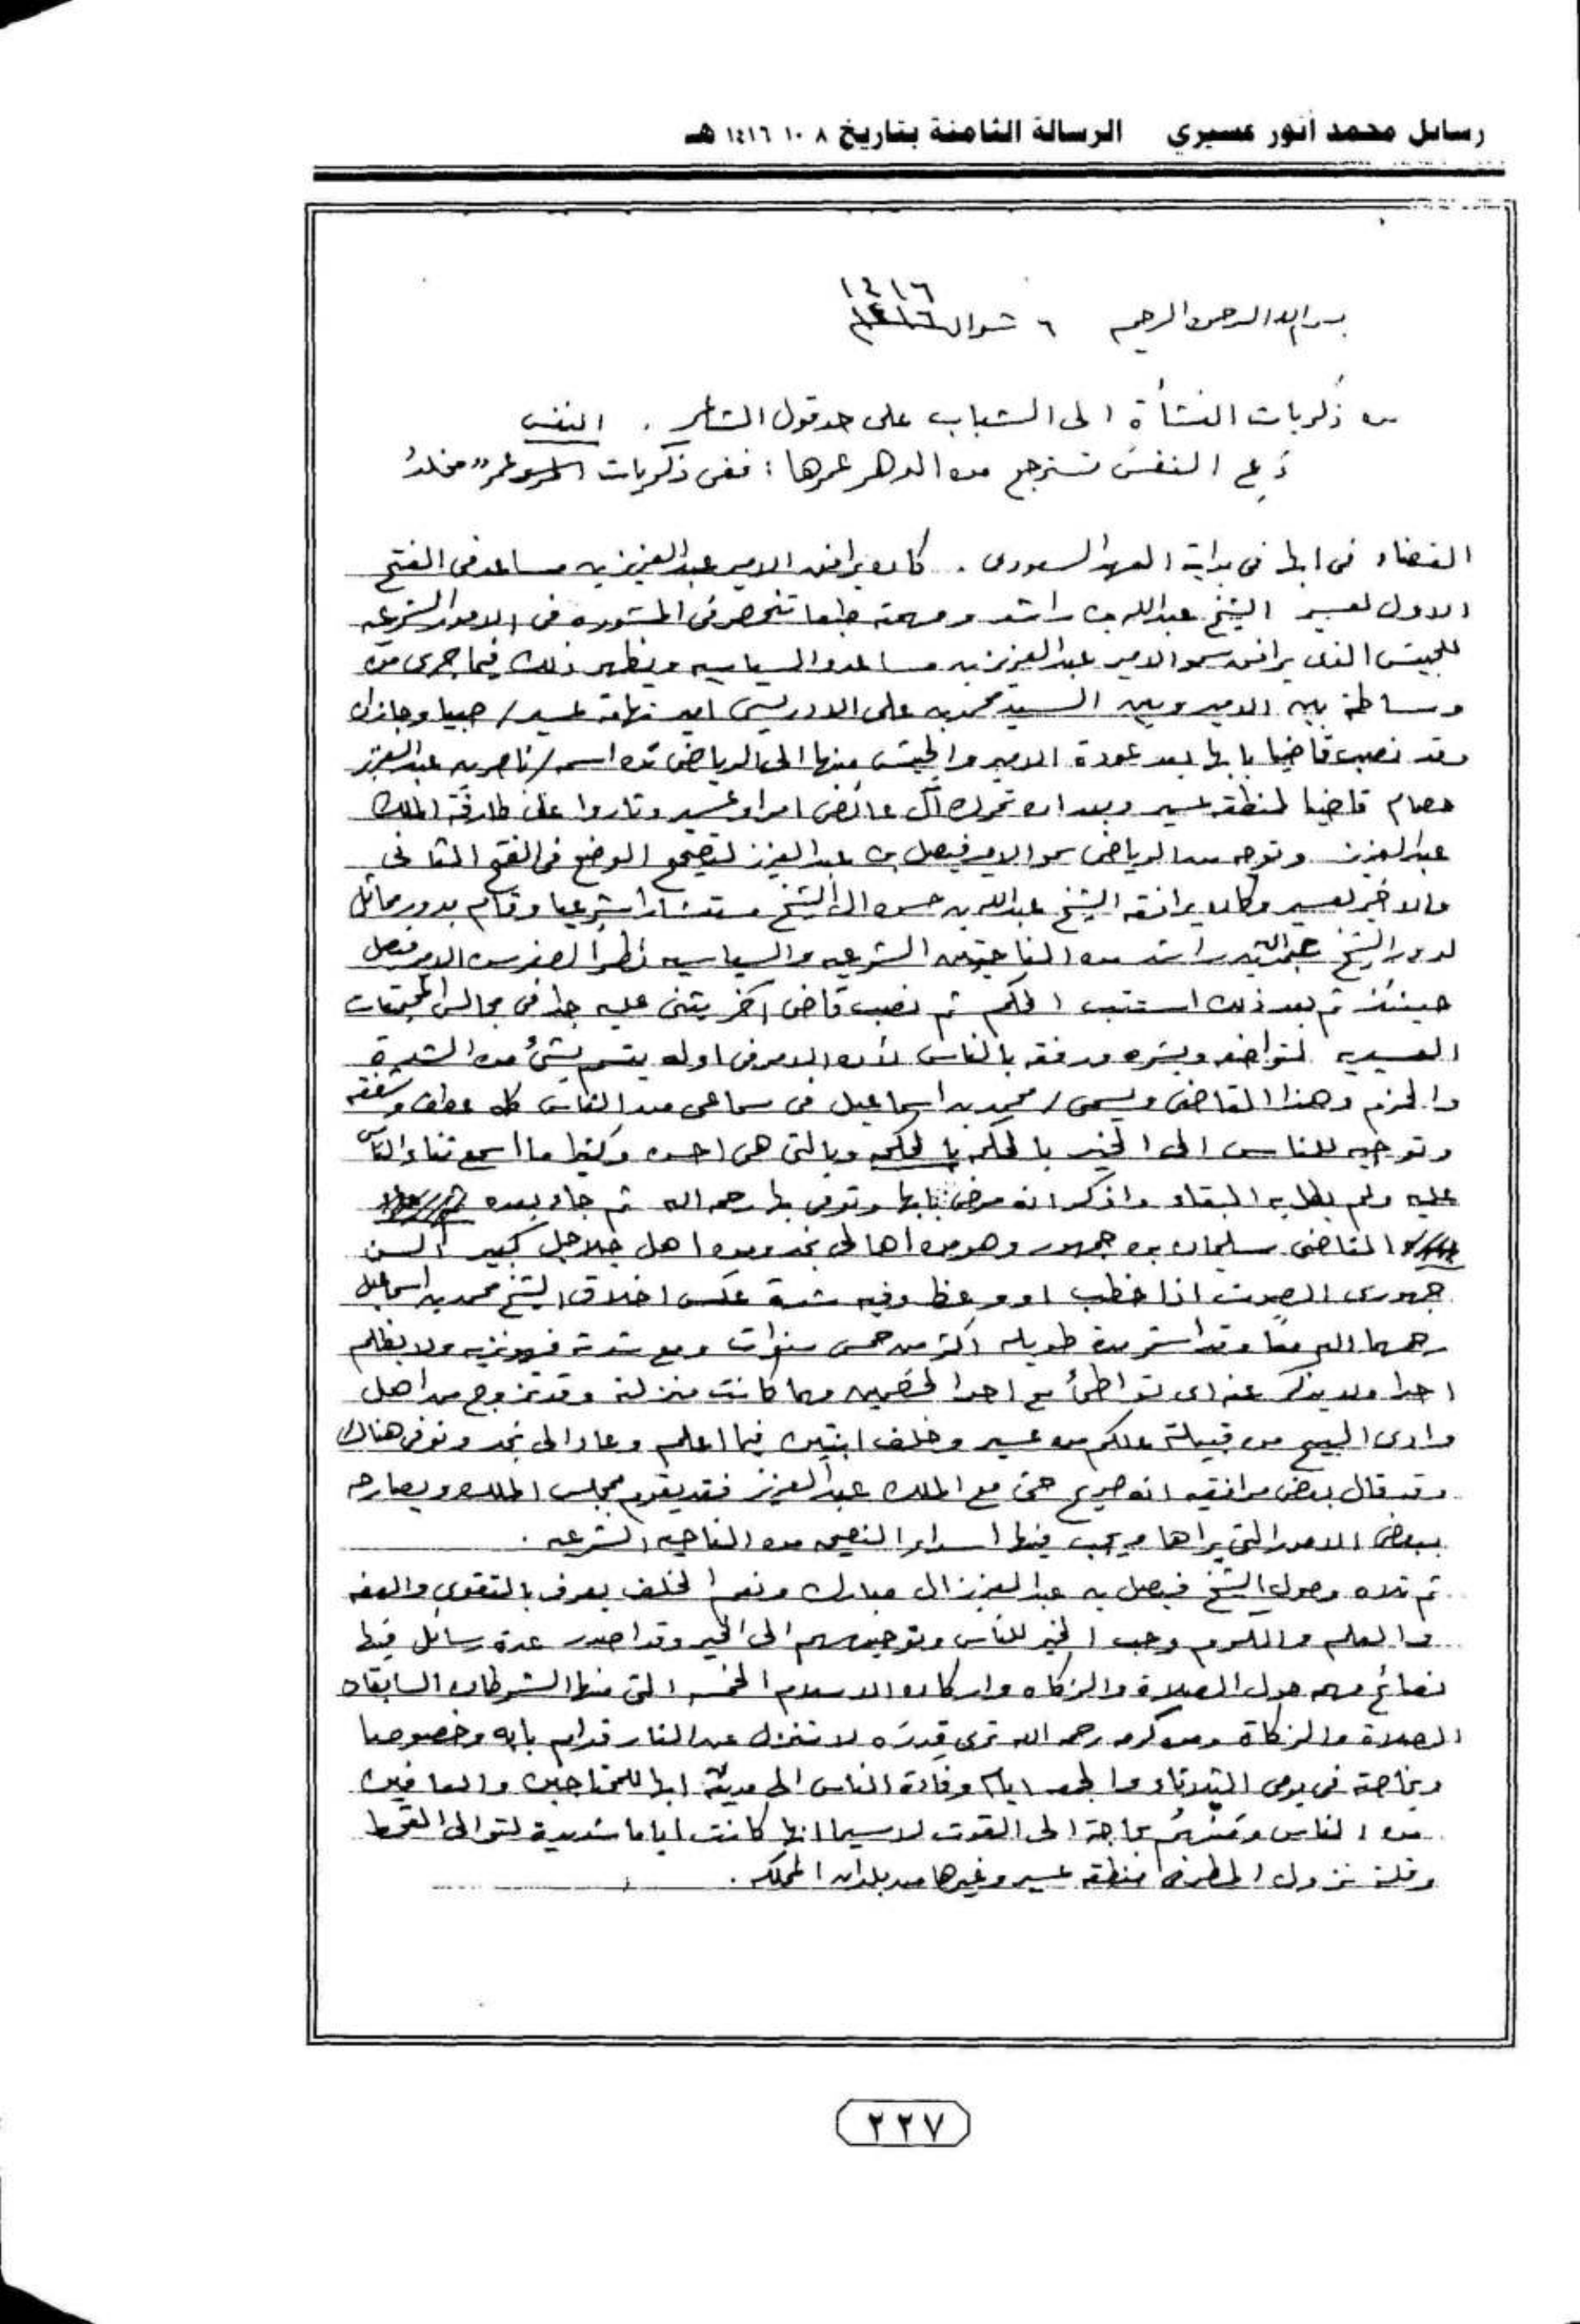 رسائل محمد أنور عسيري الرسالة الثامنة بتاريخ ٨ ١٠ ١٤١٦ هـ
١٤١٦
بسم الله الرحمن الرحيم ٦ شوال
من ذكريات النشأة الى الشباب على حد قول الشاعر . النفس
دَعِ النفسَ تسترجع من الدهر عمرها : ففى ذكريات عمر" مخلدُ
القضاء فى ابها فى بداية العهد السعودى . كان يرافق الامير عبد العزيز بن مساعد فى الفتح
الاول لعسير الشيخ عبدالله بن راشد ومهمته طبعا تنحصر فى المشوره فى الامور الشرعيه
للجيش الذى يرافق سمو الامير عبد العزيز بن مساعد والسياسيه ويظهر ذلك فيما جرى من
وساطة بين الامير وبين السيد محمد بن على الادريسى امير تهامة عسير / صبيا وجازان
وقد نصب قاضيا بابها بعد عودة الامير والجيش منها الى الرياض من اسمه / ناصر بن عبد العزيز
حصام قاضيا لمنطقة عسير وبعد ان تحرك آل عائض امراء عسير وثاروا على طارفة الملك
عبد العزيز وتوجه من الرياض سمو الامير فيصل بن عبد العزيز لتصحيح الوضع فى الفتح الثانى
والاخير لعسير وكان يرافقه الشيخ عبدالله بن حسن ال الشيخ مستشارا شرعيا وقام بدور مماثل
لدور الشيخ عبدالله بن راشد من الناحيتين الشرعيه والسياسيه نظرا لصغر سن الامير فيصل
حينئذ ثم بعد ذلك استتب الحكم ثم نصب قاضى آخر يثنى عليه جدا فى مجالس المجتمعات
العسيريه لتواضعه ويسره ورفقه بالناس لأن الامر فى اوله يتسم بشئ من الشدة
والحزم وهذا القاضى ويسمى / محمد بن اسماعيل فى سماعى من الناس كله عطف وشفقه
وتوجيه للناس الى الخير بالحكمه بالحكمه وبالتى هى احسن وكثيرا ما اسمع ثناء الناس
عليه ولم يطل به البقاء واذكر انه مرض بابها وتوفى بها رحمه الله ثم جاء بعده
القاضى سليمان بن جمهور وهو من اهالى نجد ومن اهل جلاجل كبير السن
جهورى الصوت اذا خطب او وعظ وفيه شدة عكس اخلاق الشيخ محمد بن اسماعيل
رحمهما الله معا وقد استمر مدة طويله اكثر من خمس سنوات ومع شدته فهو نزيه ولا يظلم
احدا ولا يذكر عنه اى تواطئ مع احد الخصمين مهما كانت منزلته وقد تزوج من اهل
وادى البيح من قبيلة علكم من عسير وخلف ابنتين فيما اعلم وعاد الى نجد وتوفى هناك
وقد قال بعض مرافقيه انه صريح حتى مع الملك عبد العزيز فقد يقوم بمجلس الملك ويصارحه
ببعض الامور التى يراها ويجب فيها اسداء النصيحه من الناحيه الشرعيه .
ثم تلاه وصول الشيخ فيصل بن عبد العزيز ال مبارك ونعم الخلف يعرف بالتقوى والعفه
والعلم والكرم وحب الخير للناس وتوجيههم الى الخير وقد اصدر عدة رسائل فيها
نصائح مهمه حول الصلاة والزكاه واركان الاسلام الخمسه التى منها الشرطان السابقان
الصلاة والزكاة ومن كرمه رحمه الله ترى قِدرَه لا تنزل عن النار قدام بابه وخصوصا
وبخاصة فى يومى الثلاثاء والجمعه ايام وفادة الناس الى مدينة ابها للمحتاجين والعافين
من الناس بحاجة الى القوت لا سيما انها كانت اياما شديدة لتوالى القحط
وقلة نزول المطر فى منطقة عسير وغيرها من بلدان المملكه .
٢٢٧